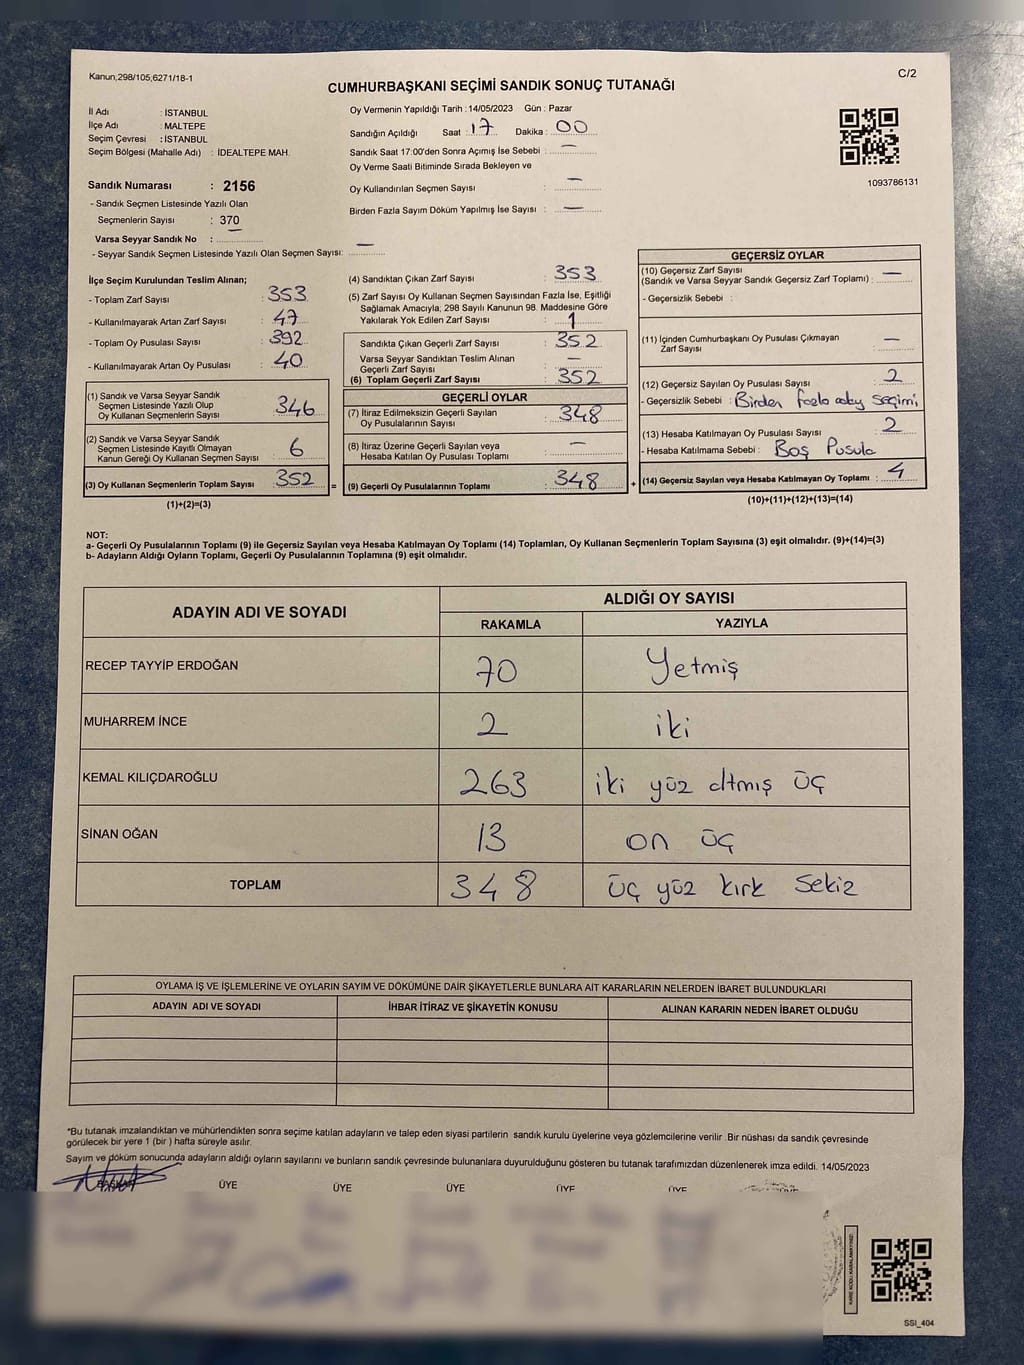 Kanun;298/105;6271/18-1
C/2
CUMHURBAŞKANI SEÇİMİ SANDIK SONUÇ TUTANAĞI
İl Adı : İSTANBUL
İlçe Adı : MALTEPE
Seçim Çevresi : İSTANBUL
Seçim Bölgesi (Mahalle Adı) : İDEALTEPE MAH.
Sandık Numarası : 2156
- Sandık Seçmen Listesinde Yazılı Olan
Seçmenlerin Sayısı : 370
Varsa Seyyar Sandık No : —
- Seyyar Sandık Seçmen Listesinde Yazılı Olan Seçmen Sayısı: —
Oy Vermenin Yapıldığı Tarih : 14/05/2023 Gün : Pazar
Sandığın Açıldığı Saat : 17 Dakika : 00
Sandık Saat 17:00'den Sonra Açımış İse Sebebi : —
Oy Verme Saati Bitiminde Sırada Bekleyen ve
Oy Kullandırılan Seçmen Sayısı : —
Birden Fazla Sayım Döküm Yapılmış İse Sayısı : —
1093786131
İlçe Seçim Kurulundan Teslim Alınan;
- Toplam Zarf Sayısı : 353
- Kullanılmayarak Artan Zarf Sayısı : 47
- Toplam Oy Pusulası Sayısı : 392
- Kullanılmayarak Artan Oy Pusulası : 40
(1) Sandık ve Varsa Seyyar Sandık
Seçmen Listesinde Yazılı Olup
Oy Kullanan Seçmenlerin Sayısı 346
(2) Sandık ve Varsa Seyyar Sandık
Seçmen Listesinde Kayıtlı Olmayan
Kanun Gereği Oy Kullanan Seçmen Sayısı 6
(3) Oy Kullanan Seçmenlerin Toplam Sayısı : 352 =
(1)+(2)=(3)
(4) Sandıktan Çıkan Zarf Sayısı : 353
(5) Zarf Sayısı Oy Kullanan Seçmen Sayısından Fazla İse, Eşitliği
Sağlamak Amacıyla; 298 Sayılı Kanunun 98. Maddesine Göre
Yakılarak Yok Edilen Zarf Sayısı : 1
Sandıkta Çıkan Geçerli Zarf Sayısı : 352
Varsa Seyyar Sandıktan Teslim Alınan
Geçerli Zarf Sayısı : —
(6) Toplam Geçerli Zarf Sayısı : 352
GEÇERLİ OYLAR
(7) İtiraz Edilmeksizin Geçerli Sayılan
Oy Pusulalarının Sayısı : 348
(8) İtiraz Üzerine Geçerli Sayılan veya
Hesaba Katılan Oy Pusulası Toplamı : —
(9) Geçerli Oy Pusulalarının Toplamı : 348 +
GEÇERSİZ OYLAR
(10) Geçersiz Zarf Sayısı
(Sandık ve Varsa Seyyar Sandık Geçersiz Zarf Toplamı) : —
- Geçersizlik Sebebi :
(11) İçinden Cumhurbaşkanı Oy Pusulası Çıkmayan
Zarf Sayısı : —
(12) Geçersiz Sayılan Oy Pusulası Sayısı : 2
- Geçersizlik Sebebi : Birden fazla aday seçimi
(13) Hesaba Katılmayan Oy Pusulası Sayısı : 2
- Hesaba Katılmama Sebebi : Boş Pusula
(14) Geçersiz Sayılan veya Hesaba Katılmayan Oy Toplamı : 4
(10)+(11)+(12)+(13)=(14)
NOT:
a- Geçerli Oy Pusulalarının Toplamı (9) ile Geçersiz Sayılan veya Hesaba Katılmayan Oy Toplamı (14) Toplamları, Oy Kullanan Seçmenlerin Toplam Sayısına (3) eşit olmalıdır. (9)+(14)=(3)
b- Adayların Aldığı Oyların Toplamı, Geçerli Oy Pusulalarının Toplamına (9) eşit olmalıdır.
ADAYIN ADI VE SOYADI
ALDIĞI OY SAYISI
RAKAMLA YAZIYLA
RECEP TAYYİP ERDOĞAN 70 Yetmiş
MUHARREM İNCE 2 iki
KEMAL KILIÇDAROĞLU 263 iki yüz altmış üç
SİNAN OĞAN 13 on üç
TOPLAM 348 üç yüz kırk sekiz
OYLAMA İŞ VE İŞLEMLERİNE VE OYLARIN SAYIM VE DÖKÜMÜNE DAİR ŞİKAYETLERLE BUNLARA AİT KARARLARIN NELERDEN İBARET BULUNDUKLARI
ADAYIN ADI VE SOYADI İHBAR İTİRAZ VE ŞİKAYETİN KONUSU ALINAN KARARIN NEDEN İBARET OLDUĞU
*Bu tutanak imzalandıktan ve mühürlendikten sonra seçime katılan adayların ve talep eden siyasi partilerin sandık kurulu üyelerine veya gözlemcilerine verilir. Bir nüshası da sandık çevresinde
görülecek bir yere 1 (bir) hafta süreyle asılır.
Sayım ve döküm sonucunda adayların aldığı oyların sayılarını ve bunların sandık çevresinde bulunanlara duyurulduğunu gösteren bu tutanak tarafımızdan düzenlenerek imza edildi. 14/05/2023
BAŞKAN ÜYE ÜYE ÜYE ÜYE ÜYE ÜYE
KARE KODU KARALAMAYINIZ!
SSI_404